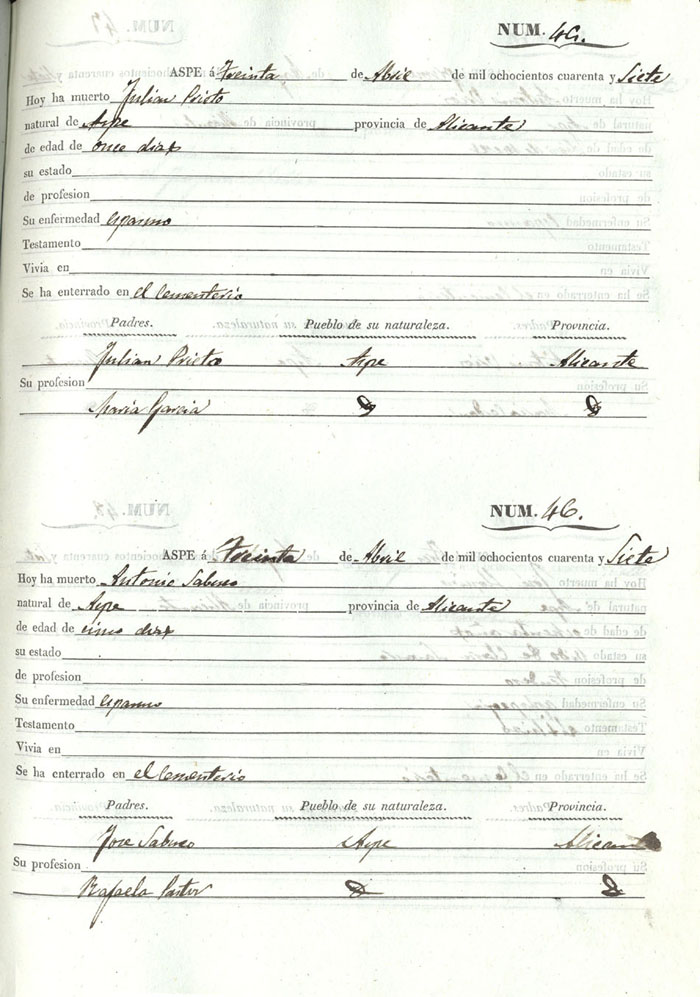 NUM. 45.
ASPE á Treinta de Abril de mil ochocientos cuarenta y Siete
Hoy ha muerto Julian Prieto
natural de Aspe provincia de Alicante
de edad de once dias
su estado
de profesion
Su enfermedad espasmo
Testamento
Vivia en
Se ha enterrado en el Cementerio
Padres. Pueblo de su naturaleza. Provincia.
Julian Prieto Aspe Alicante
Su profesion
Maria Garcia
NUM. 46.
ASPE á Treinta de Abril de mil ochocientos cuarenta y Siete
Hoy ha muerto Antonio
natural de Aspe provincia de Alicante
de edad de dias
su estado
de profesion
Su enfermedad espasmo
Testamento
Vivia en
Se ha enterrado en el Cementerio
Padres. Pueblo de su naturaleza. Provincia.
Jose Aspe Alicante
Su profesion
Rafaela Pastor